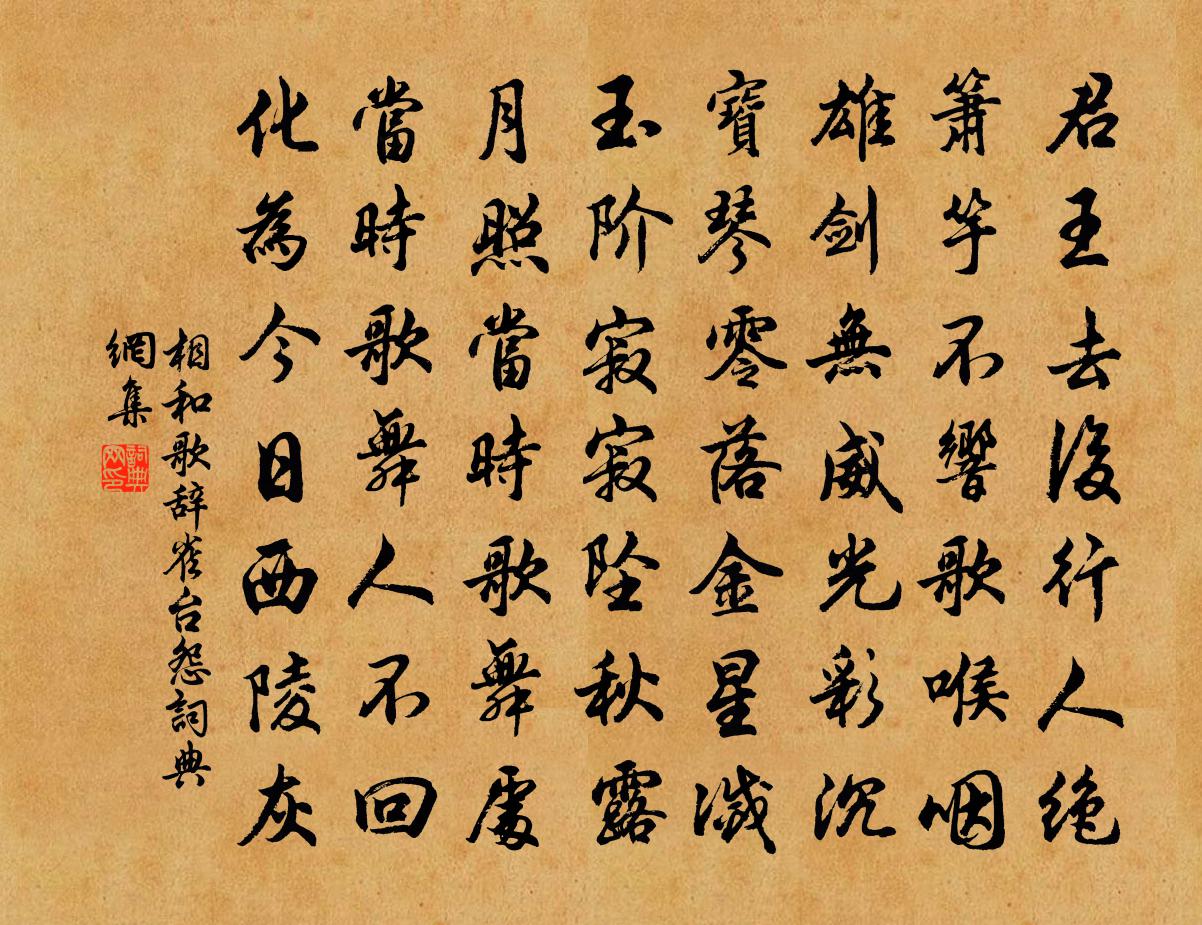 君王去後行人絶
簫竽不響歌喉咽
雄劍無威光彩沉
寶琴零落金星滅
玉阶寂寂坠秋露
月照當時歌舞處
當時歌舞人不回
化為今日西陵灰
相和歌辞雀台怨詞典
網集
詞典
网印